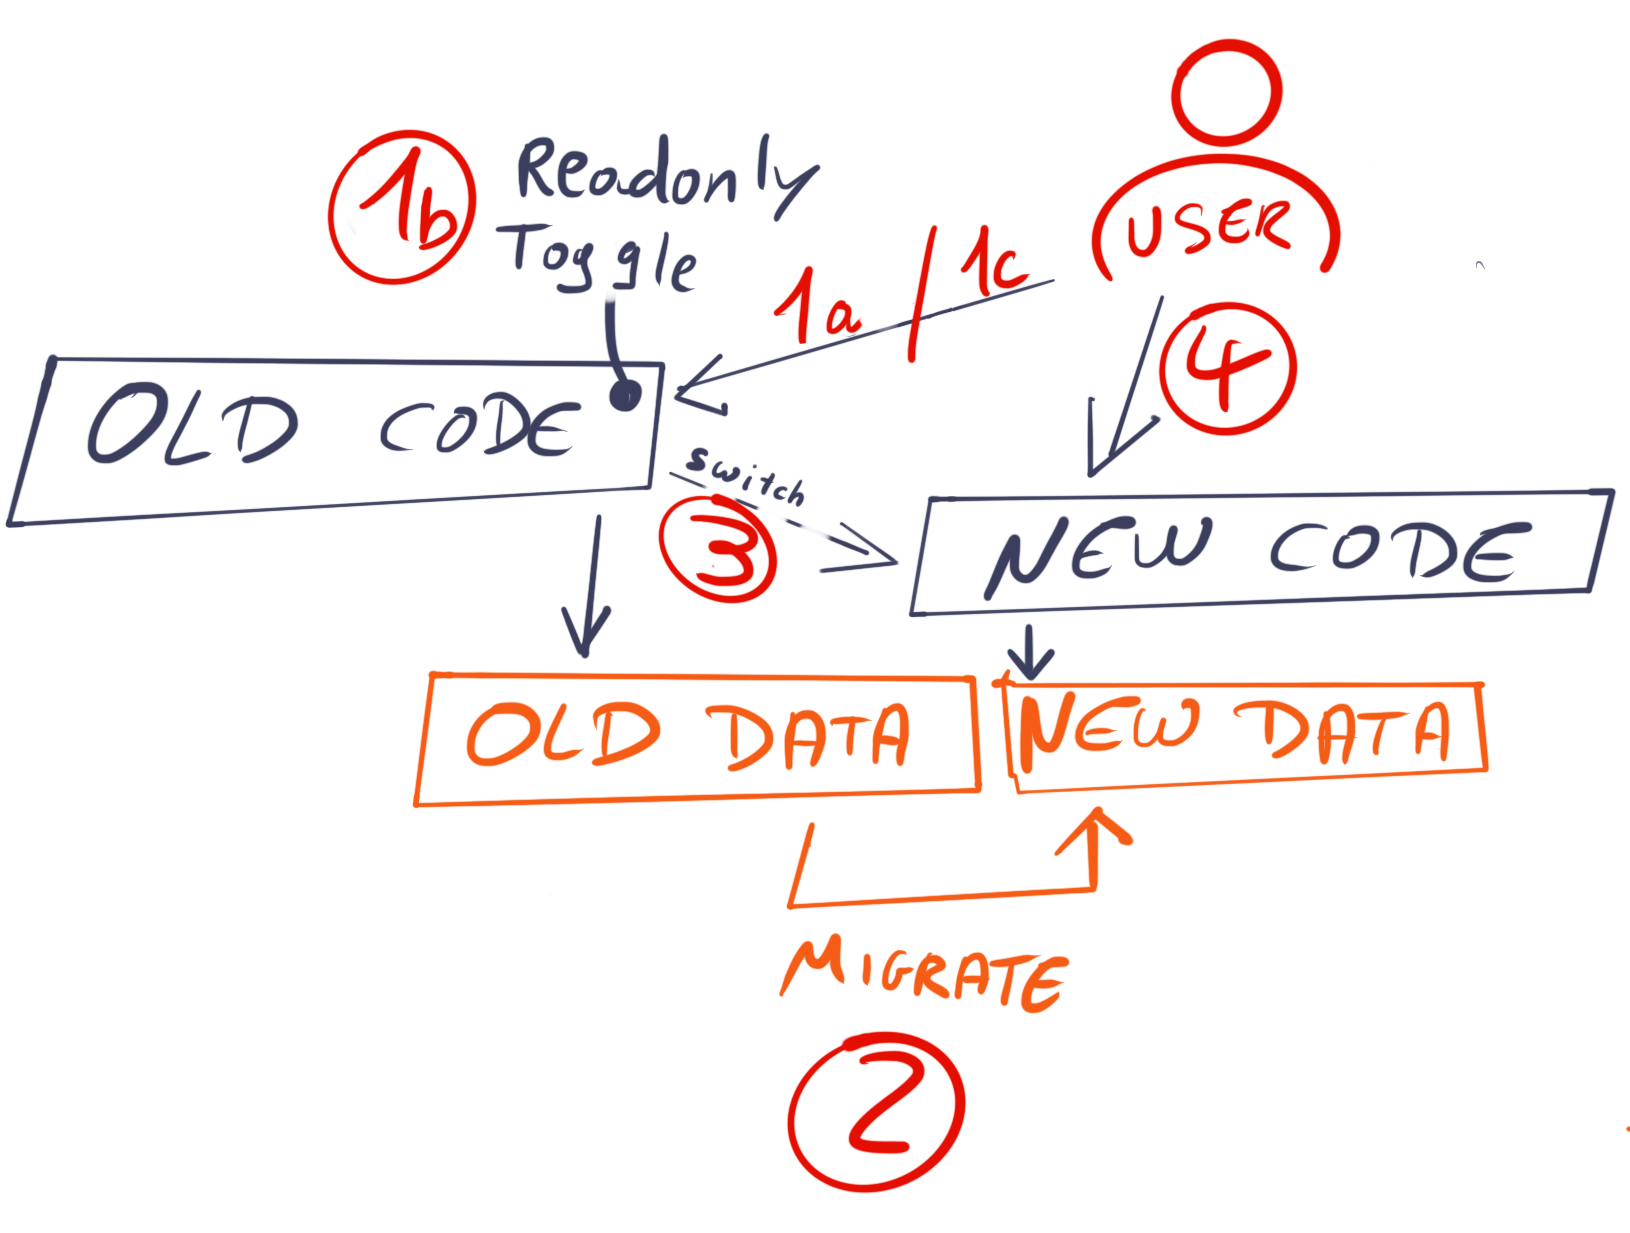 1b
Readonly
Toggle
USER
1a / 1c
4
OLD CODE
switch
3
NEW CODE
OLD DATA
NEW DATA
MIGRATE
2